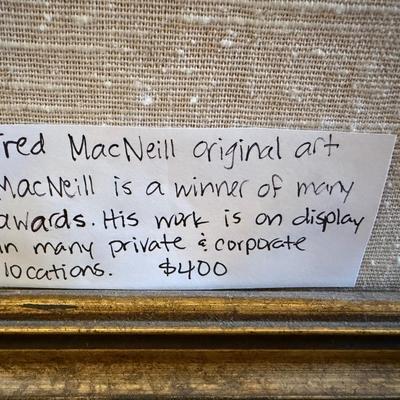 Fred MacNeill original art
MacNeill is a winner of many
awards. His work is on display
in many private & corporate
locations. $400